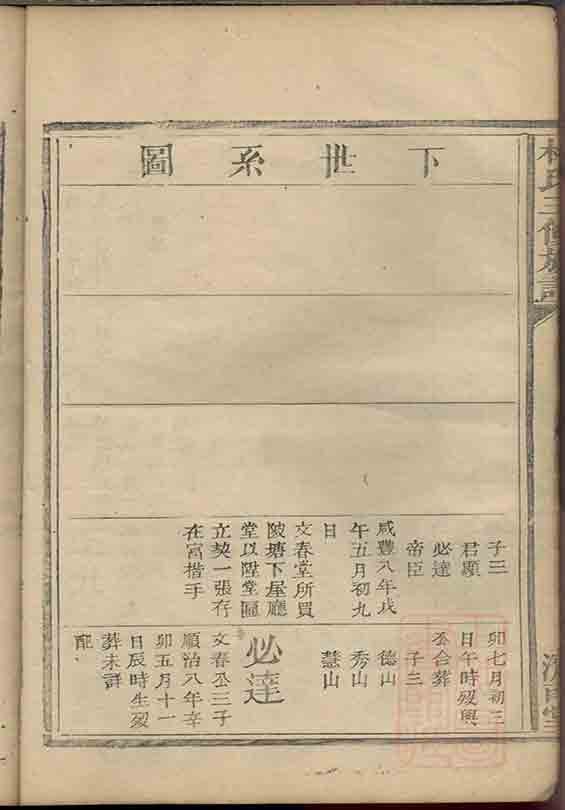 下世系圖
子三
君顯
必達
帝臣
咸豐八年戊
午五月初九
日
文春堂所買
陂塘下屋廳
堂以陞堂匾
立契一張存
在宮楷手
卯七月初三
日午時歿與
公合葬
子三
德山
秀山
慧山
必達
文春公三子
順治八年辛
卯五月十一
日辰時生歿
葬未詳
配
氏三修族